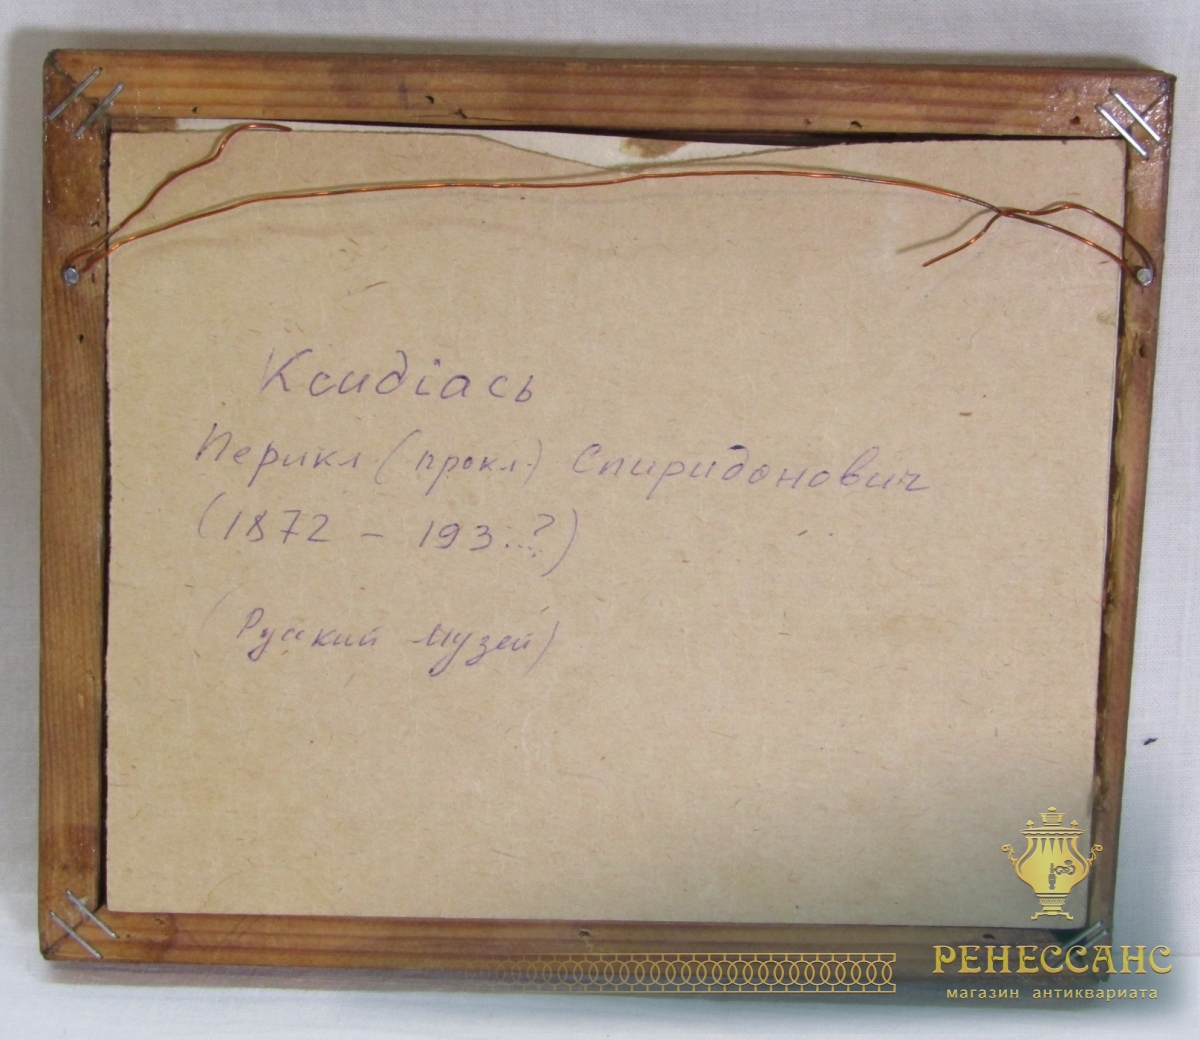 Ксидіась
Перикл (прокл.) Спиридонович
(1872 – 193..?)
(Русский музей)
РЕНЕССАНС
магазин антиквариата